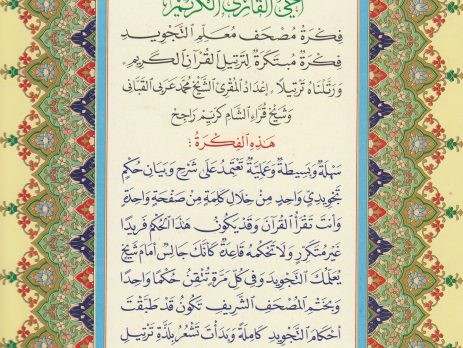 أخي القارئ الكريم
فِكْرَةُ مُصْحَفِ مُعَلِّمِ التَّجْوِيدِ
فِكْرَةٌ مُبْتَكَرَةٌ لِتَرْتِيلِ القُرْآنِ الكَرِيمِ
وَرَتَّلْنَاهُ تَرْتِيلًا، إِعْدَادُ المُقْرِئ الشَّيْخ مُحَمَّد عَرَبِي القَبَّانِي
وَشَيْخِ قُرَّاءِ الشَّامِ كُرَيِّم رَاجِح
هَذِهِ الفِكْرَةُ :
سَهْلَةٌ وَبَسِيطَةٌ وَعَمَلِيَّةٌ تَعْتَمِدُ عَلَى شَرْحِ وَبَيَانِ حُكْمٍ
تَجْوِيدِيٍّ وَاحِدٍ مِنْ خِلَالِ كَلِمَةٍ مِنْ صَفْحَةٍ وَاحِدَةٍ
وَأَنْتَ تَقْرَأُ القُرْآنَ وَقَدْ يَكُونُ هَذَا الحُكْمُ فَرِيدًا
غَيْرَ مُتَكَرِّرٍ وَلَا تَحْكُمُهُ قَاعِدَةٌ كَأَنَّكَ جَالِسٌ أَمَامَ شَيْخٍ
يُعَلِّمُكَ التَّجْوِيدَ وَفِي كُلِّ مَرَّةٍ تُتْقِنُ حُكْمًا وَاحِدًا
وَبِخَتْمِ المُصْحَفِ الشَّرِيفِ تَكُونُ قَدْ طَبَّقْتَ
أَحْكَامَ التَّجْوِيدِ كَامِلَةً وَبَدَأْتَ تَشْعُرُ بِلَذَّةِ تَرْتِيلِ